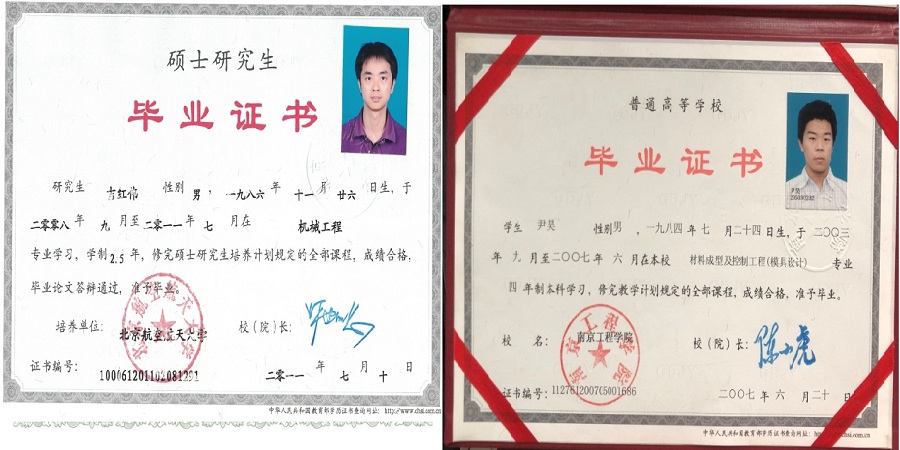 硕士研究生
毕业证书
研究生 肖红伟 性别 男，一九八六年 十一月 廿六日生，于
二零零八年 九月至二零一一年 七月在 机械工程
专业学习，学制2.5年，修完硕士研究生培养计划规定的全部课程，成绩合格，
毕业论文答辩通过，准予毕业。
培养单位：北京航空航天大学 校（院）长：
证书编号：100061201102081291 二零一一年 七月 十日
中华人民共和国教育部学历证书查询网址：http://www.chsi.com.cn
普通高等学校
毕业证书
尹昊
学生 尹昊 性别男，一九八四年七月二十四日生，于二〇〇三
年九月至二〇〇七年 六月在本校 材料成型及控制工程(模具设计) 专业
四年制本科学习，修完教学计划规定的全部课程，成绩合格，准予毕业。
校 名：南京工程学院 校（院）长：陈小虎
证书编号：112761200705001686 二〇〇七年 六月二十日
中华人民共和国教育部学历证书查询网址：http://www.chsi.com.cn